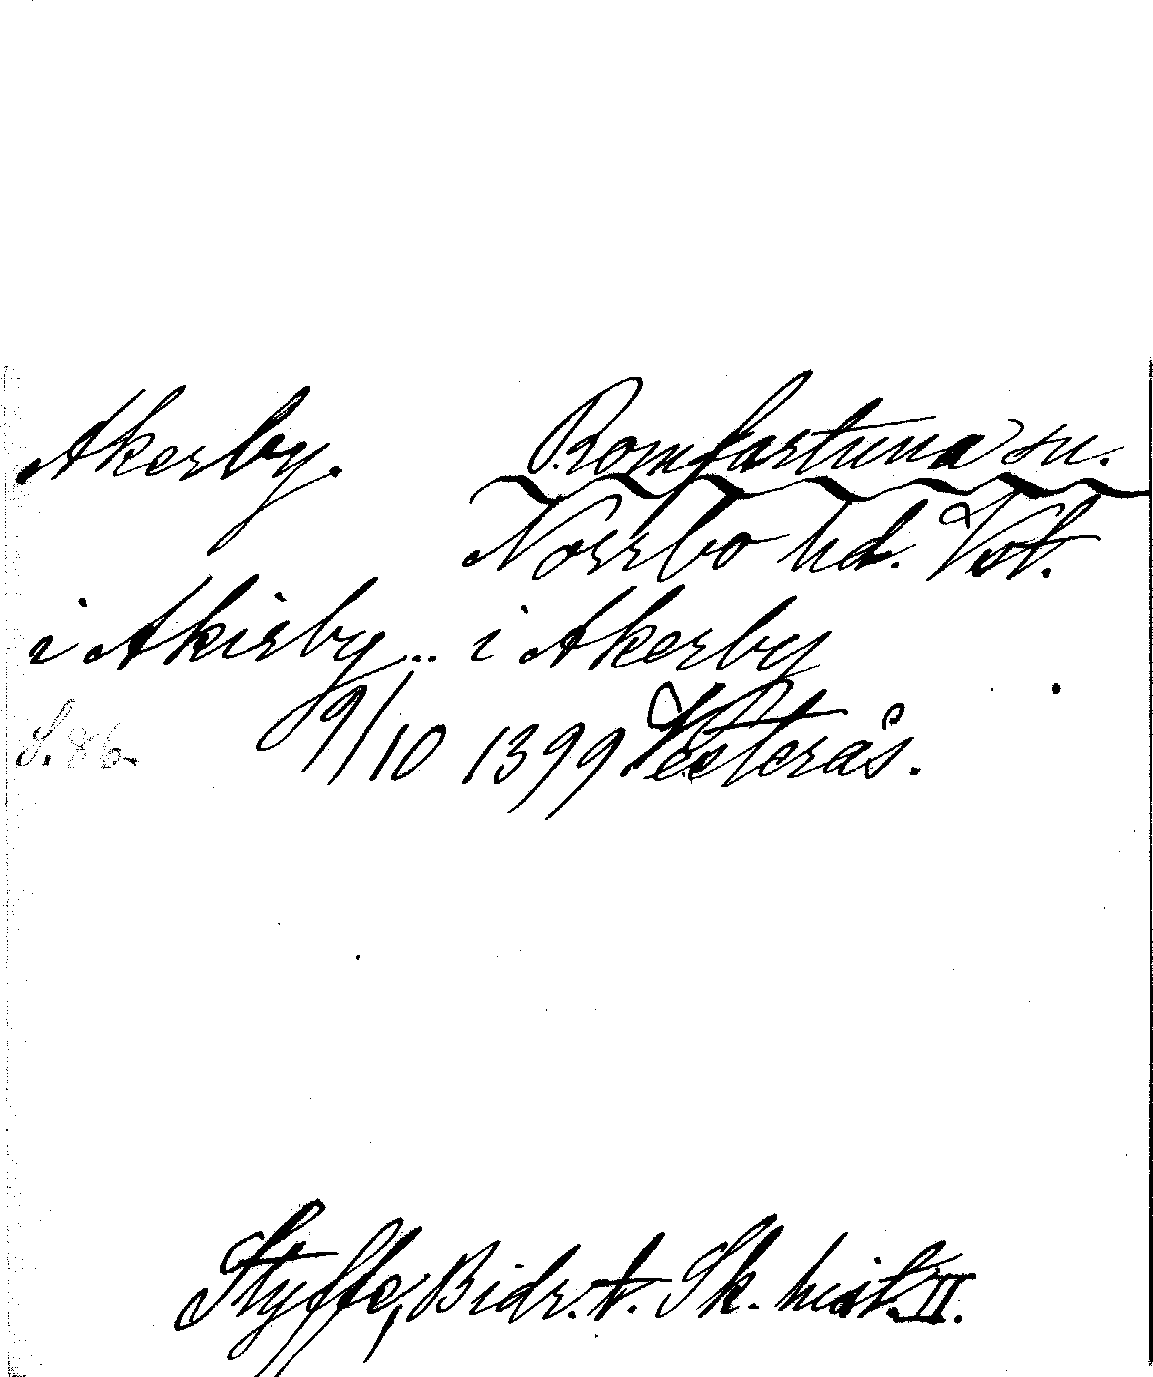 Akerby. Romfartuna sn.
Norrbo hd. Vstl.
i Akirby... i Akerby
S. 86. 9/10 1399 Vesterås.
Styffe, Bidr. t. Sk. hist. II.